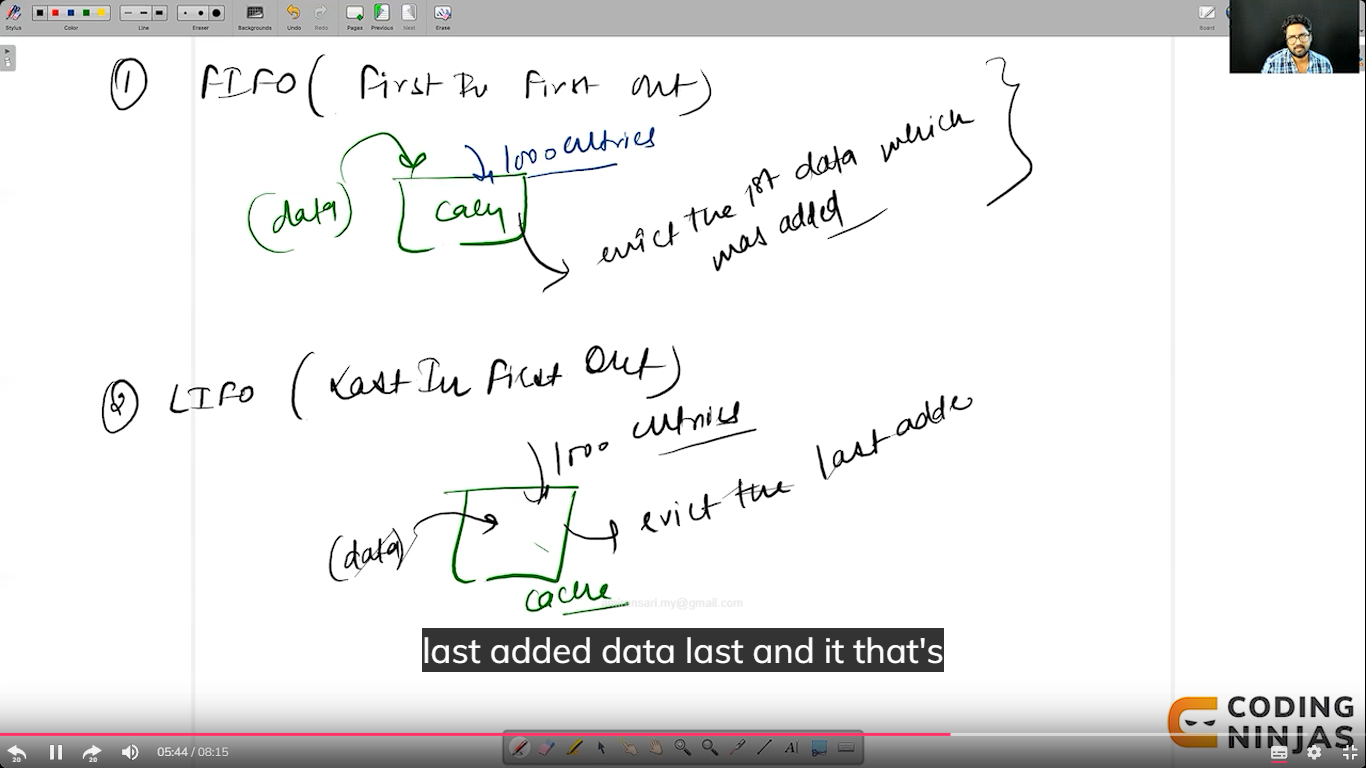 Stylus Color Line Eraser Backgrounds Undo Redo Pages Previous Next Erase Board
① FIFO ( First In First Out )
1000 entries
(data)
evict the 1st data which
was added
② LIFO ( Last In First Out )
1000 entries
evict the last adde
(data)
cache
last added data last and it that's
CODING
NINJAS
05:44 / 08:15
20 20